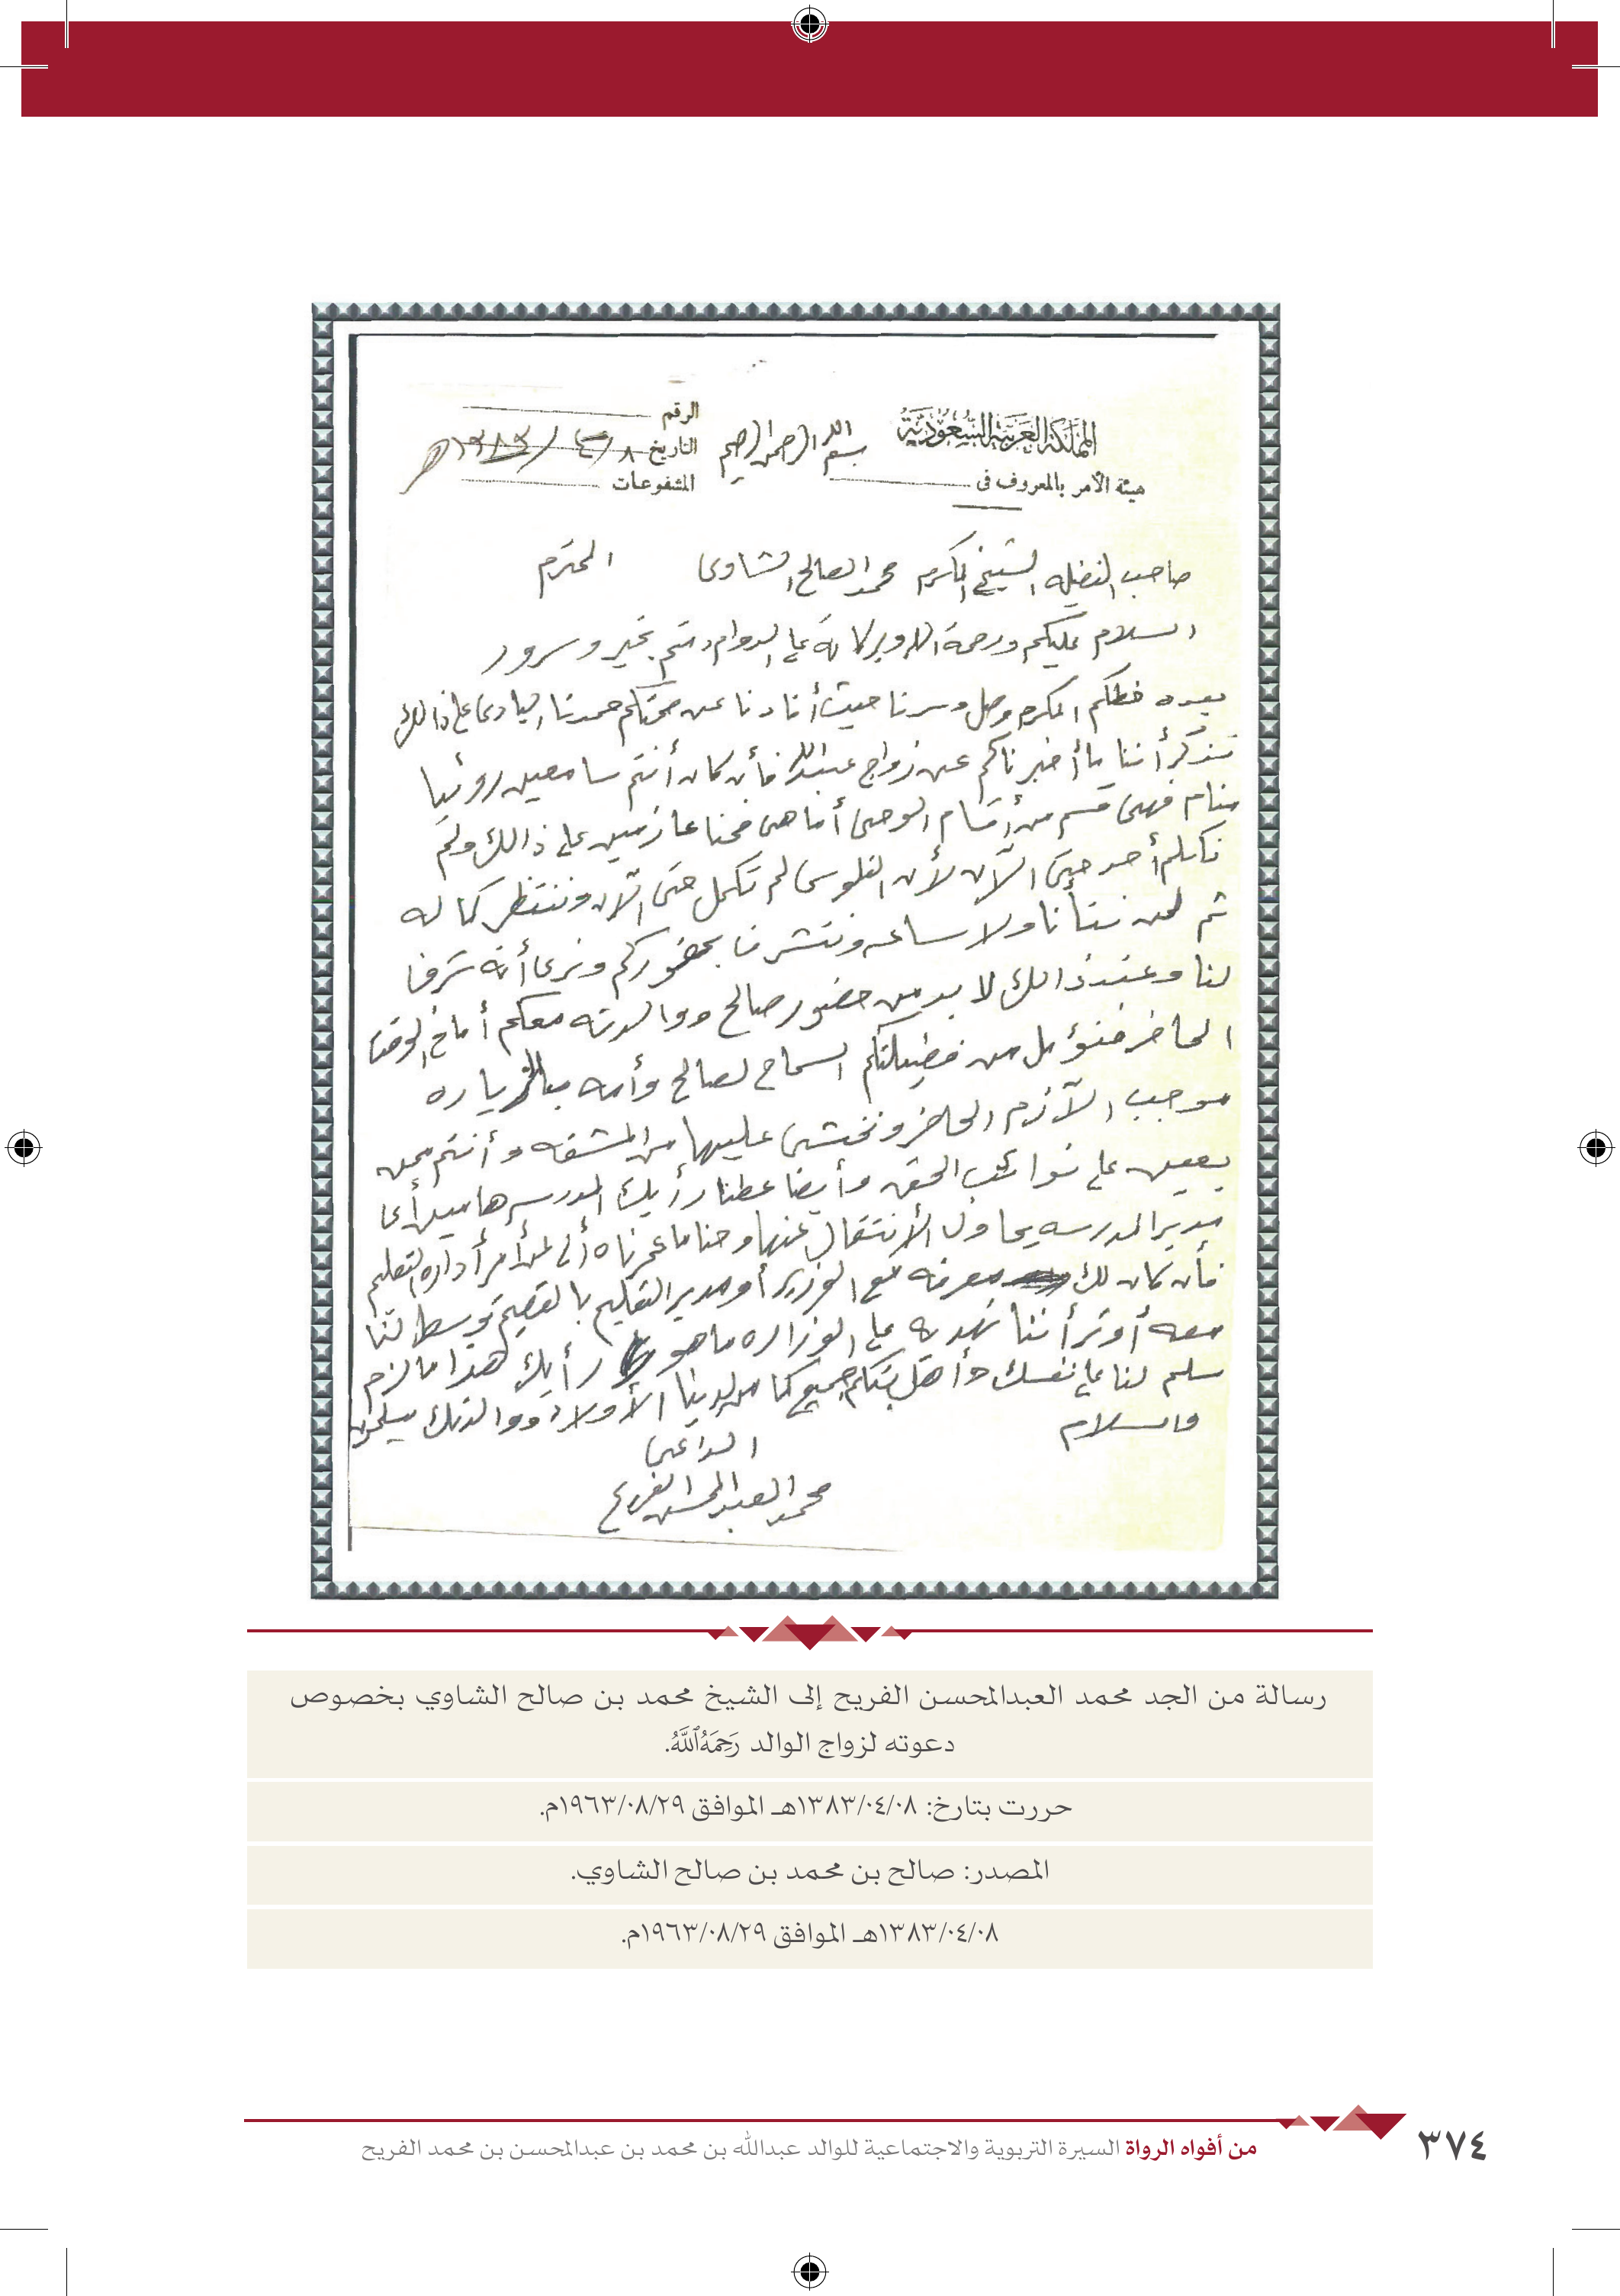 المملكة العربية السعودية
هيئة الأمر بالمعروف في
بسم الله الرحمن الرحيم
الرقم
التاريخ ٨/٤/١٣٨٣هـ
المشفوعات
صاحب الفضيله الشيخ المكرم محمد الصالح الشاوي المحترم
السلام عليكم ورحمة الله وبركاته على الدوام دمتم بخير وسرور
بعده خطكم المكرم وصل وسرنا حيث أفادنا عن صحتكم حمدنا الباري على ذالك
تذكر أننا ما أخبرناكم عن زواج عبدالله فأن كان أنتم سامعين روئيا
منام فهي قسم من أقسام الوحي أما هي فحنا عازمين على ذالك ولم
نكلم أحد حتى الآن لأن الفلوس لم تكمل حتى الآن وننتظر كماله
ثم لحن نتأنا ولا ساعه ونتشرف بحضوركم ونرى أنه شرفا
لنا وعند ذالك لا بد من حضور صالح ووالدته معكم أما في الوقت
الحاضر فنؤمل من فضيلتكم السماح لصالح وأمه بالزياره
موجب الآزم الحاضر ونخشى عليها من المشقه وأنتم ممن
يعين على نوائب الحق وأيضا عطنا رأيك المدرسه هامين أي
مدير المدرسه يحاول الأنتقال عنها وحنا ما عمرناه ألى لمن أمر أدارة التعليم
فأن كان لك معرفه مع الوزير أو مدير التعليم بالقصيم توسط لنا
معه أو تر أننا نهد به على الوزاره ما هو رأيك هذا ما لزم
سلم لنا على نفسك وأهل بيتكم جميع كما من لدينا الأولاد ووالدتك يسلمون
والسلام
الداعي
محمد العبدالمحسن الفريح
رسالة من الجد محمد العبدالمحسن الفريح إلى الشيخ محمد بن صالح الشاوي بخصوص
دعوته لزواج الوالد رَحِمَهُ ٱللَّهُ.
حررت بتارخ: ١٣٨٣/٠٤/٠٨هـ الموافق ١٩٦٣/٠٨/٢٩م.
المصدر: صالح بن محمد بن صالح الشاوي.
١٣٨٣/٠٤/٠٨هـ الموافق ١٩٦٣/٠٨/٢٩م.
من أفواه الرواة السيرة التربوية والاجتماعية للوالد عبدالله بن محمد بن عبدالمحسن بن محمد الفريح
٣٧٤